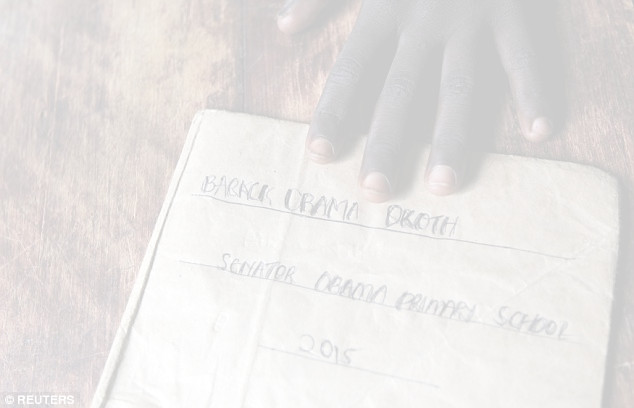 BARACK OBAMA OKOTH
SENATOR OBAMA PRIMARY SCHOOL
2015
© REUTERS